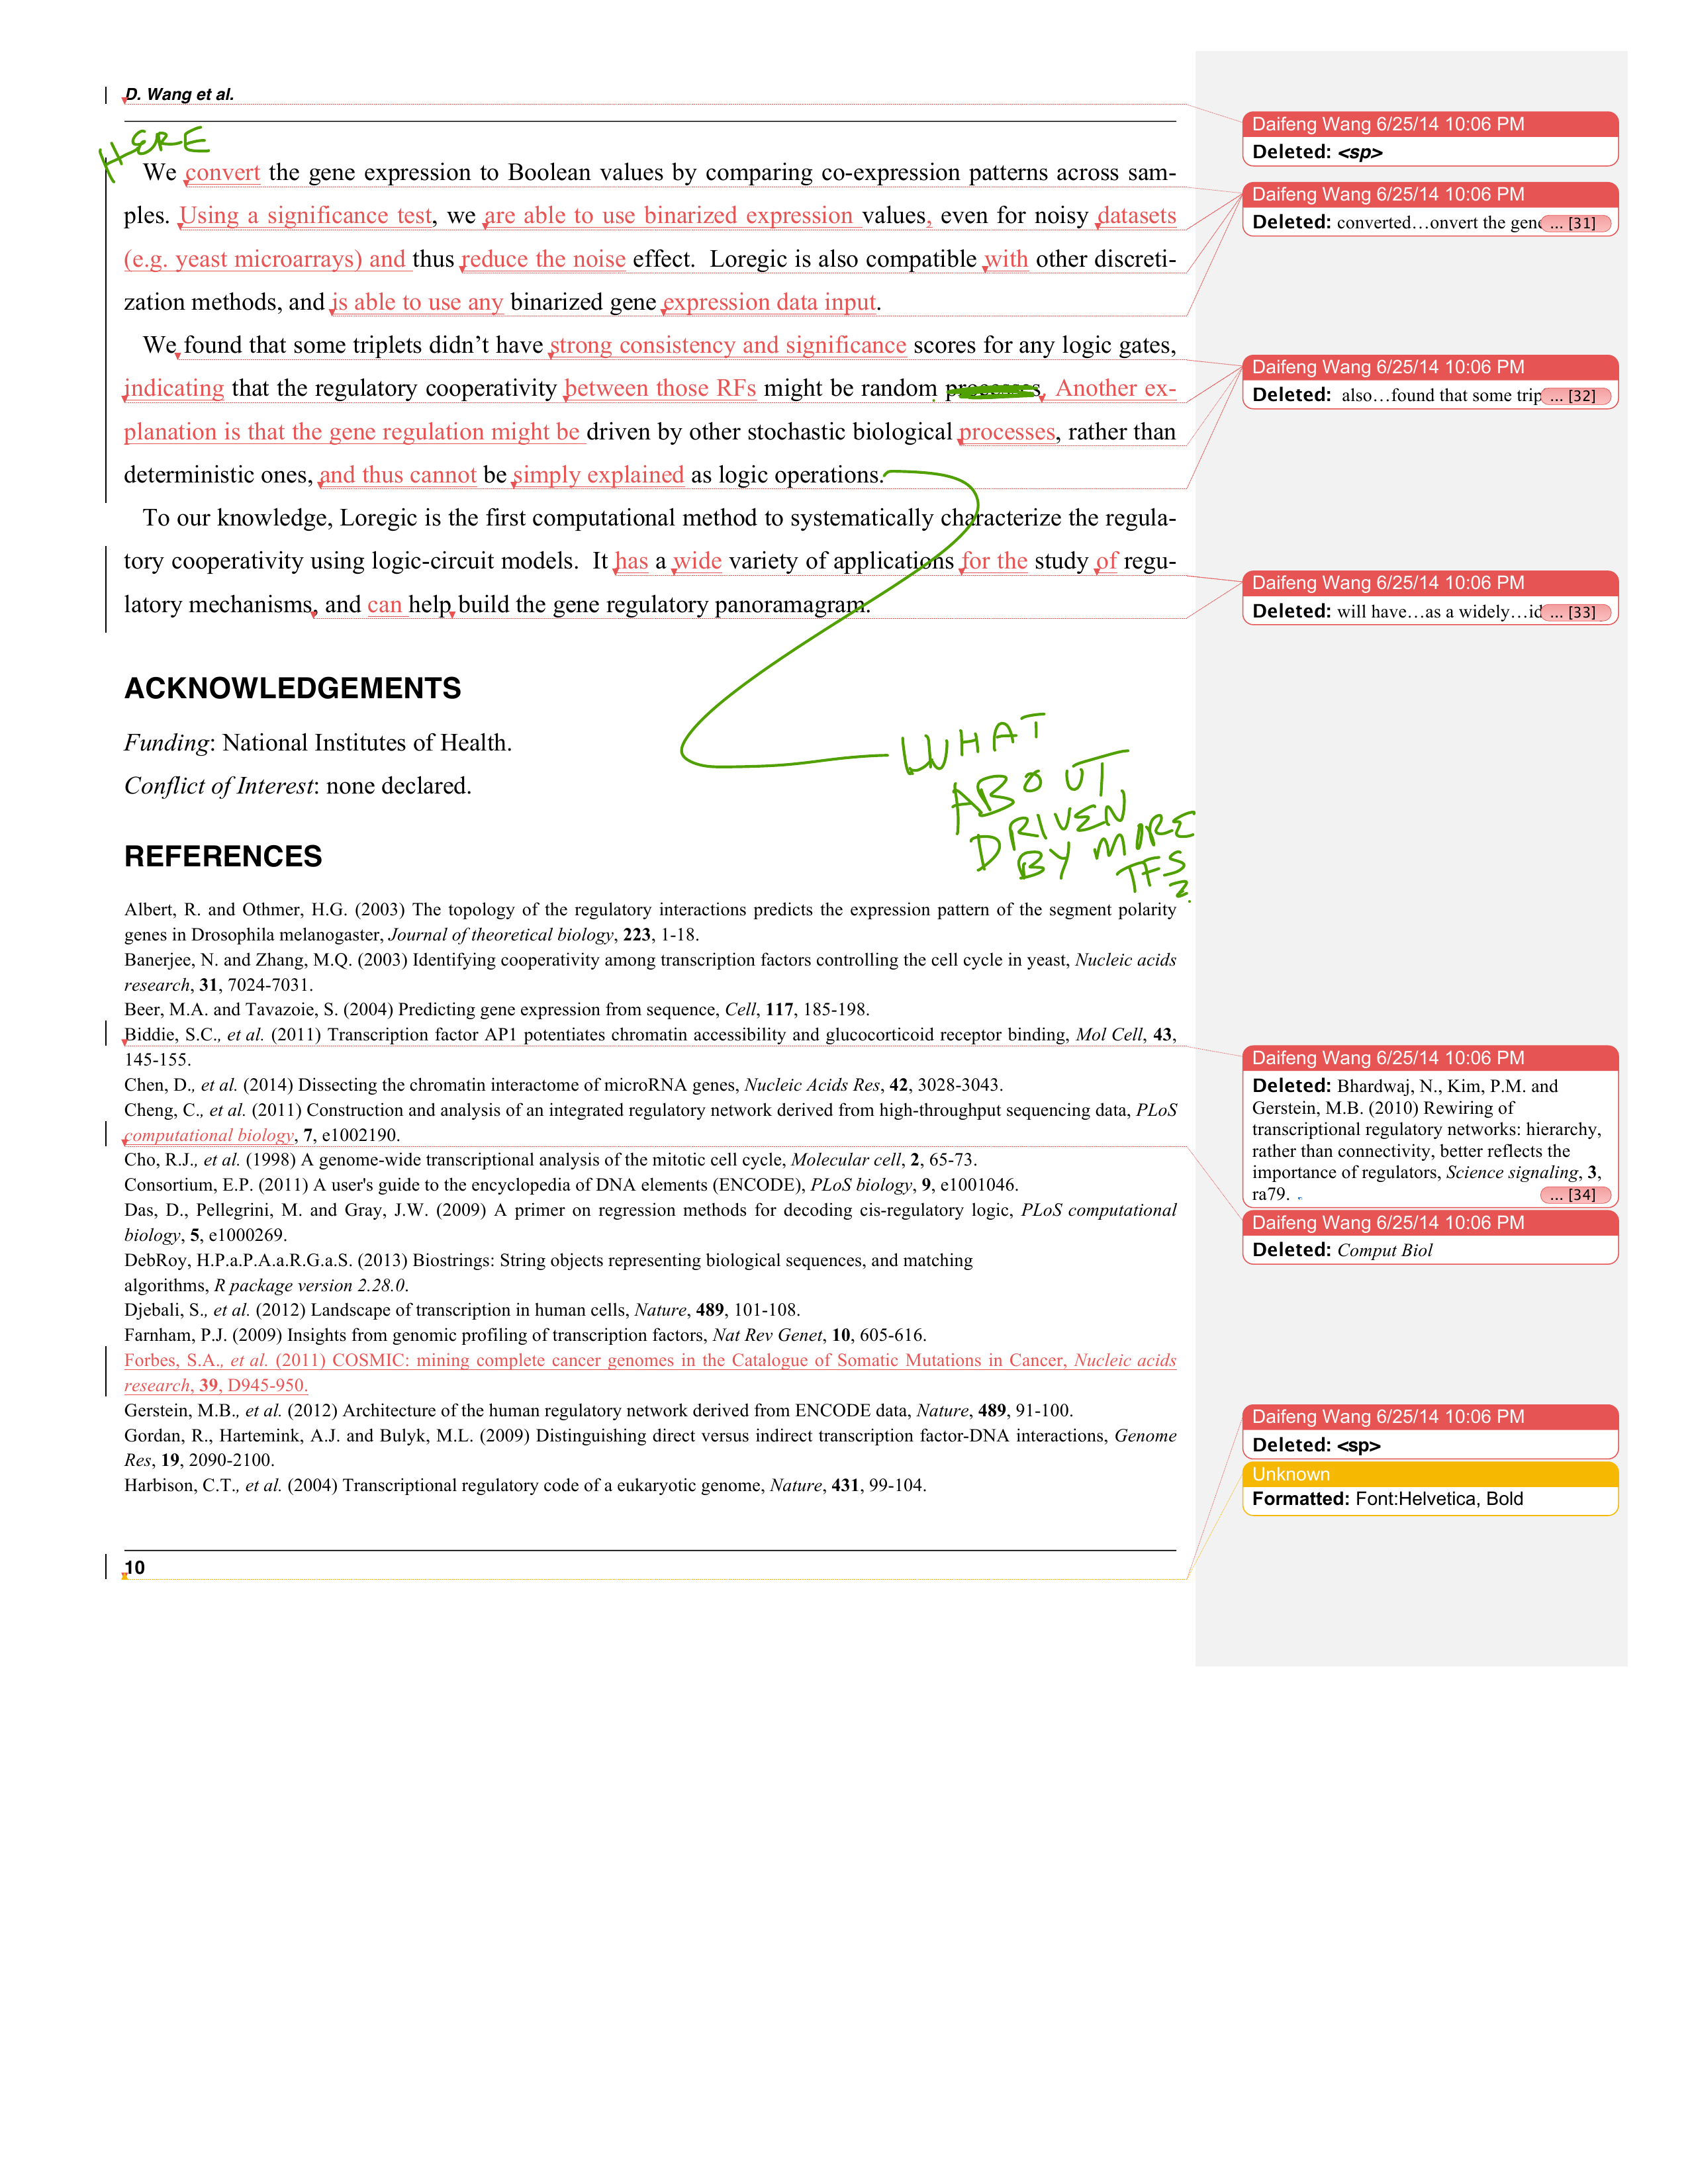 D. Wang et al.
HERE
We convert the gene expression to Boolean values by comparing co-expression patterns across sam-
ples. Using a significance test, we are able to use binarized expression values, even for noisy datasets
(e.g. yeast microarrays) and thus reduce the noise effect. Loregic is also compatible with other discreti-
zation methods, and is able to use any binarized gene expression data input.
We found that some triplets didn't have strong consistency and significance scores for any logic gates,
indicating that the regulatory cooperativity between those RFs might be random processes. Another ex-
planation is that the gene regulation might be driven by other stochastic biological processes, rather than
deterministic ones, and thus cannot be simply explained as logic operations.
To our knowledge, Loregic is the first computational method to systematically characterize the regula-
tory cooperativity using logic-circuit models. It has a wide variety of applications for the study of regu-
latory mechanisms, and can help build the gene regulatory panoramagram.
ACKNOWLEDGEMENTS
Funding: National Institutes of Health.
Conflict of Interest: none declared.
WHAT
ABOUT
DRIVEN
BY MORE
TFS
?
REFERENCES
Albert, R. and Othmer, H.G. (2003) The topology of the regulatory interactions predicts the expression pattern of the segment polarity
genes in Drosophila melanogaster, Journal of theoretical biology, 223, 1-18.
Banerjee, N. and Zhang, M.Q. (2003) Identifying cooperativity among transcription factors controlling the cell cycle in yeast, Nucleic acids
research, 31, 7024-7031.
Beer, M.A. and Tavazoie, S. (2004) Predicting gene expression from sequence, Cell, 117, 185-198.
Biddie, S.C., et al. (2011) Transcription factor AP1 potentiates chromatin accessibility and glucocorticoid receptor binding, Mol Cell, 43,
145-155.
Chen, D., et al. (2014) Dissecting the chromatin interactome of microRNA genes, Nucleic Acids Res, 42, 3028-3043.
Cheng, C., et al. (2011) Construction and analysis of an integrated regulatory network derived from high-throughput sequencing data, PLoS
computational biology, 7, e1002190.
Cho, R.J., et al. (1998) A genome-wide transcriptional analysis of the mitotic cell cycle, Molecular cell, 2, 65-73.
Consortium, E.P. (2011) A user's guide to the encyclopedia of DNA elements (ENCODE), PLoS biology, 9, e1001046.
Das, D., Pellegrini, M. and Gray, J.W. (2009) A primer on regression methods for decoding cis-regulatory logic, PLoS computational
biology, 5, e1000269.
DebRoy, H.P.a.P.A.a.R.G.a.S. (2013) Biostrings: String objects representing biological sequences, and matching
algorithms, R package version 2.28.0.
Djebali, S., et al. (2012) Landscape of transcription in human cells, Nature, 489, 101-108.
Farnham, P.J. (2009) Insights from genomic profiling of transcription factors, Nat Rev Genet, 10, 605-616.
Forbes, S.A., et al. (2011) COSMIC: mining complete cancer genomes in the Catalogue of Somatic Mutations in Cancer, Nucleic acids
research, 39, D945-950.
Gerstein, M.B., et al. (2012) Architecture of the human regulatory network derived from ENCODE data, Nature, 489, 91-100.
Gordan, R., Hartemink, A.J. and Bulyk, M.L. (2009) Distinguishing direct versus indirect transcription factor-DNA interactions, Genome
Res, 19, 2090-2100.
Harbison, C.T., et al. (2004) Transcriptional regulatory code of a eukaryotic genome, Nature, 431, 99-104.
10
Daifeng Wang 6/25/14 10:06 PM
Deleted: <sp>
Daifeng Wang 6/25/14 10:06 PM
Deleted: converted…onvert the gen ... [31]
Daifeng Wang 6/25/14 10:06 PM
Deleted: also…found that some trip ... [32]
Daifeng Wang 6/25/14 10:06 PM
Deleted: will have…as a widely…id ... [33]
Daifeng Wang 6/25/14 10:06 PM
Deleted: Bhardwaj, N., Kim, P.M. and
Gerstein, M.B. (2010) Rewiring of
transcriptional regulatory networks: hierarchy,
rather than connectivity, better reflects the
importance of regulators, Science signaling, 3,
ra79. ... [34]
Daifeng Wang 6/25/14 10:06 PM
Deleted: Comput Biol
Daifeng Wang 6/25/14 10:06 PM
Deleted: <sp>
Unknown
Formatted: Font:Helvetica, Bold